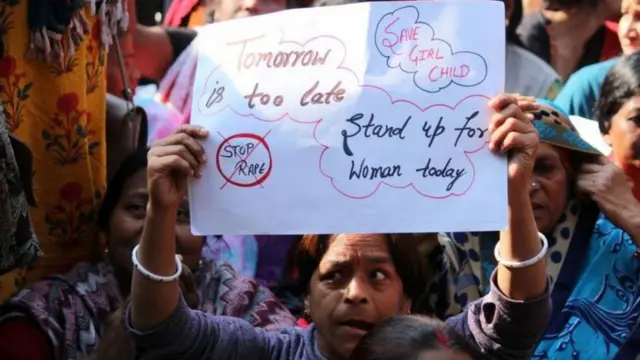 Tomorrow
is too late
SAVE
GIRL
CHILD
STOP
RAPE
Stand up for
Woman today